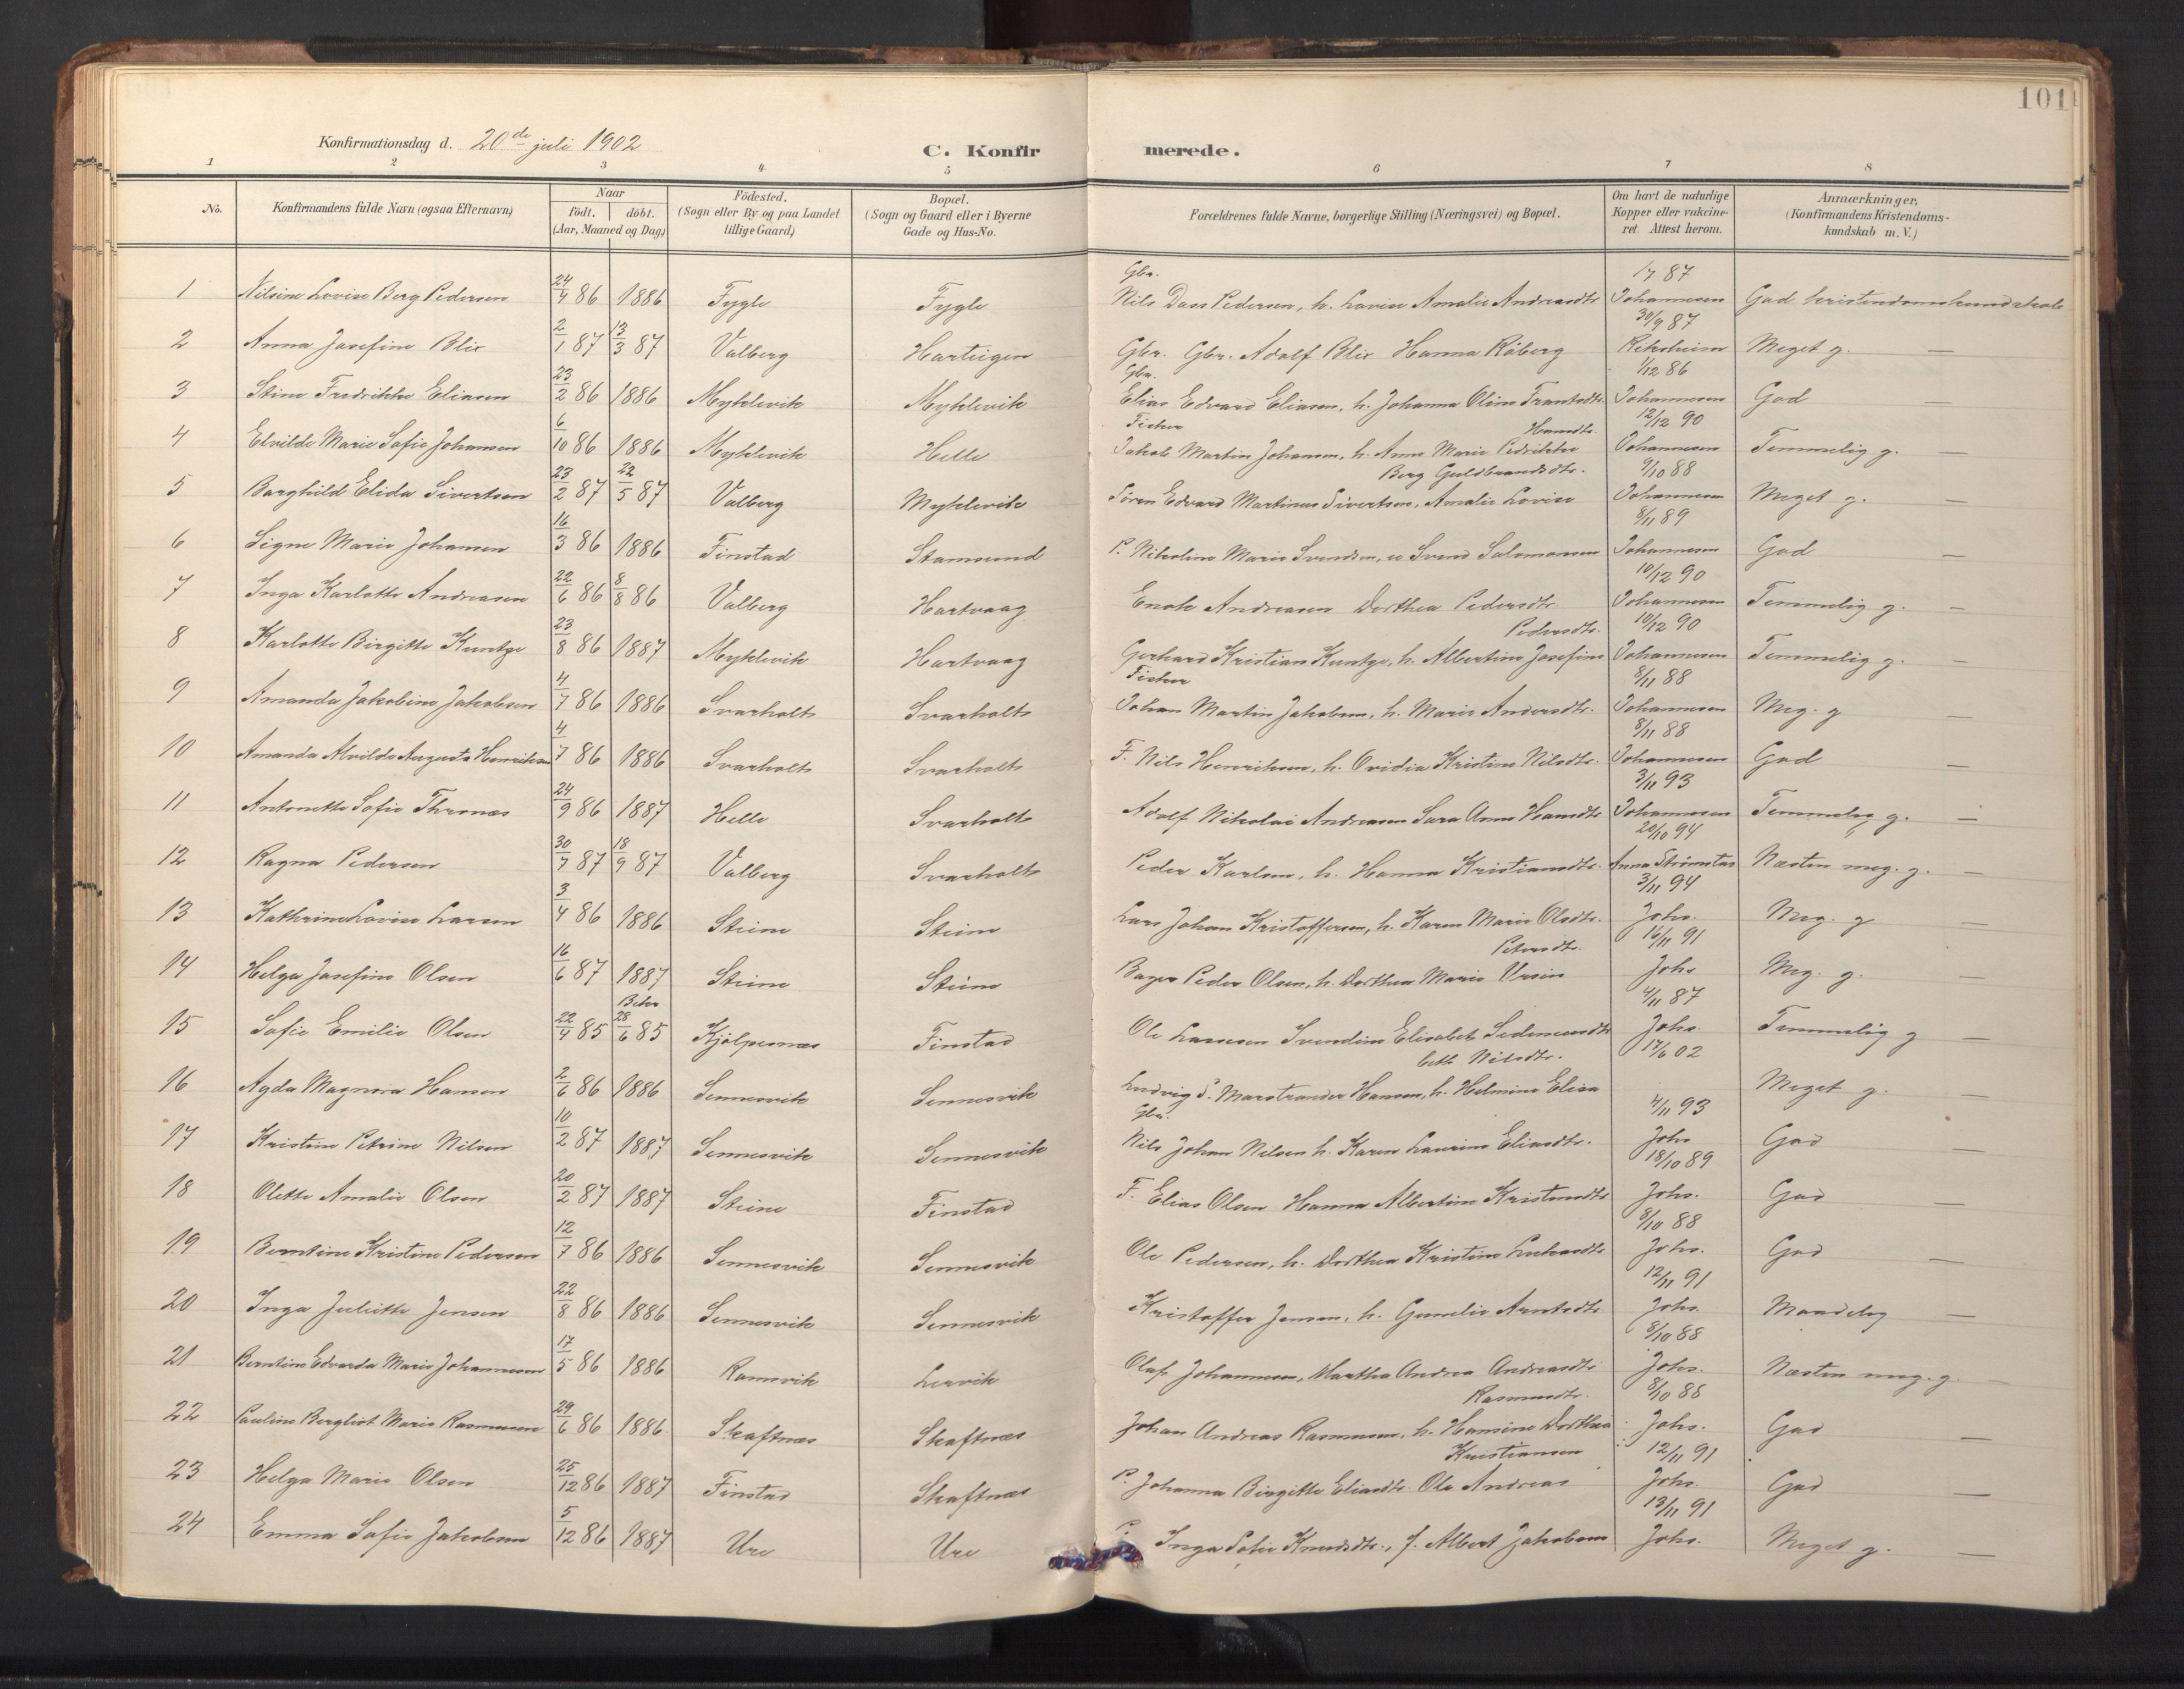 101
Konfirmationsdag d. 20de juli 1902
C. Konfirmerede.
1 2 3 4 5 6 7 8
No. | Konfirmandens fulde Navn (ogsaa Efternavn) | Naar födt. döbt. (Aar, Maaned og Dag) | Födested. (Sogn eller By og paa Landet tillige Gaard) | Bopæl. (Sogn og Gaard eller i Byerne Gade og Hus-No. | Forældrenes fulde Navne, borgerlige Stilling (Næringsvei) og Bopæl. | Om havt de naturlige Kopper eller vakcineret. Attest herom. | Anmærkninger, (Konfirmandens Kristendomskundskab m. V.)
1 Nilsine Lovise Berg Pedersen 24/4 86 1886 Fygle Fygle Gbr. Nils Dass Pedersen, h. Lovise Amalie Andreasdtr 1/7 87 Johannesen God kristendomskundskab
2 Anna Josefine Blix 2/1 87 13/3 87 Valberg Harteigen Gbr. Gbr. Adolf Blix Hanna Råberg 30/9 87 Meget g. —
3 Stine Fredrikke Eliasen 23/2 86 1886 Myklevik Myklevik Gbr. Elias Edvard Eliasen, h. Johanna Oline Frantsdtr 1/12 86 Johannesen God —
4 Elvilde Marie Sofie Johansen 6/10 86 1886 Myklevik Helle Fisker Jakob Martin Johansen, h. Anne Marie Fredrikke Hansdtr. 12/12 90 Johannesen Temmelig g. —
5 Borghild Elida Sivertsen 23/2 87 22/5 87 Valberg Myklevik Sören Edvard Martinus Sivertsen, Amalie Lovise Berg Guldbrandsdtr. 9/10 88 Johannesen Meget g. —
6 Signe Marie Johansen 16/3 86 1886 Finstad Stamsund P. Nikoline Marie Svendsen, u Svend Salomonsen 8/11 89 Johannesen God —
7 Inga Karlotte Andreasen 22/6 86 8/8 86 Valberg Hartvaag Enok Andreasen Dorthea Pedersdtr 10/12 90 Johannesen Temmelig g. —
8 Karlotte Birgitte Kuntze 23/8 86 1887 Myklevik Hartvaag Gerhard Kristian Kuntze, h. Albertine Josefine Pedersdtr. 10/12 90 Johannesen Temmelig g. —
9 Amanda Jakobine Jakobsen 4/7 86 1886 Svarholt Svarholt Fisker Johan Martin Jakobsen, h. Marie Andersdtr. 8/11 88 Johannesen Meg. g —
10 Amanda Alvilde Augusta Henriksen 4/7 86 1886 Svarholt Svarholt F. Nils Henriksen, h. Ovidia Kristine Nilsdtr. 8/11 88 Johannesen God —
11 Antonette Sofie Thronæs 24/9 86 1887 Helle Svarholt Adolf Nikolai Andreasen Sara Anna Hansdtr 3/11 93 Johannesen Temmelig g. —
12 Ragna Pedersen 30/7 87 18/9 87 Valberg Svarholt Peder Karlsen, h. Hanna Kristiansdtr. 20/10 94 Anna Strømstad Næsten meg. g. —
13 Kathrine Lovise Larsen 3/4 86 1886 Steine Steine Lars Johan Kristoffersen, h. Karen Marie Olsdtr. 3/11 94 Johs. Meg. g —
14 Helga Josefine Olsen 16/6 87 1887 Steine Steine Bager Peder Olsen, h. Dorthea Marie Ursin Petersdtr. 16/11 91 Johs Meg. g. —
15 Sofie Emilie Olsen 22/4 85 28/6 85 Finstad Ole Larsesen Svendine Elisabet 4/11 87 Johs. Temmelig g —
16 Agda Magnora Hansen 2/6 86 1886 Sennesvik Sennesvik Ludvig S. Marstrander Hansen, h. Helmine Elisa beth Nilsdtr. 17/6 02 Meget g. —
17 Kristine Petrine Nilsen 10/2 87 1887 Sennesvik Sennesvik Gbr. Nils Johan Nilsen h. Karen Laurine Eliasdtr. 4/11 93 Johs God —
18 Olette Amalie Olsen 20/2 87 1887 Steine Finstad F. Elias Olsen Hanna Albertine Kristensdtr 18/10 89 Johs. God —
19 Berntine Kristine Pedersen 12/7 86 1886 Sennesvik Sennesvik Ole Pedersen, h. Dorthea Kristine 8/10 88 Johs. God —
20 Inga Juliette Jensen 22/8 86 1886 Sennesvik Sennesvik Kristoffer Jensen, h. Gunelie Arntsdtr 12/11 91 Johs. Maadelig —
21 Berntine Edvarda Marie Johannesen 17/5 86 1886 Ramsvik Leirvik Olaf Johannesen, Martha Andrea Andreasdtr 8/10 88 Johs. Næsten meg. g. —
22 Pauline Bergliot Marie Rasmussen 29/6 86 1886 Skaftnæs Skaftnæs Johan Andreas Rasmussen, h. Hansine Dorthea Rasmusdtr. 8/10 88 Johs. God —
23 Helga Marie Olsen 25/12 86 1887 Finstad Skaftnæs P. Johanna Birgitte Eliasdtr. Ole Andreas Kristiansen 12/11 91 Johs. God —
24 Emma Sofie Jakobsen 5/12 86 1887 Ure Ure Inga Sofie Knudsdtr., f. Albert Jakobsen 13/11 91 Johs. Meget g. —